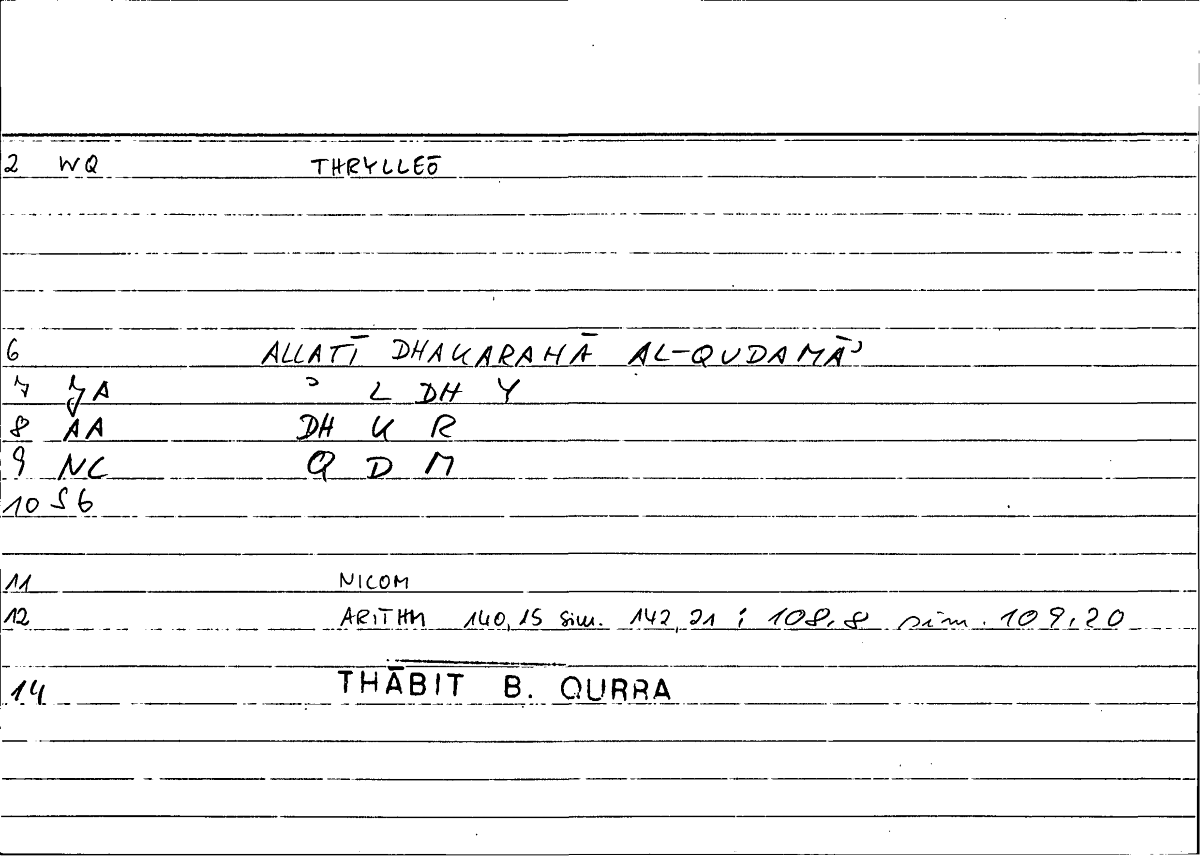 2 WQ THRYLLEŌ
6 ALLATĪ DHAKARAHĀ AL-QUDAMĀʾ
7 JA ʾ L DH Y
8 AA DH K R
9 NC Q D M
10 S6
11 NICOM
12 ARITHM 140,15 sim. 142,21 ; 108,8 sim. 109,20
14 THĀBIT B. QURRA